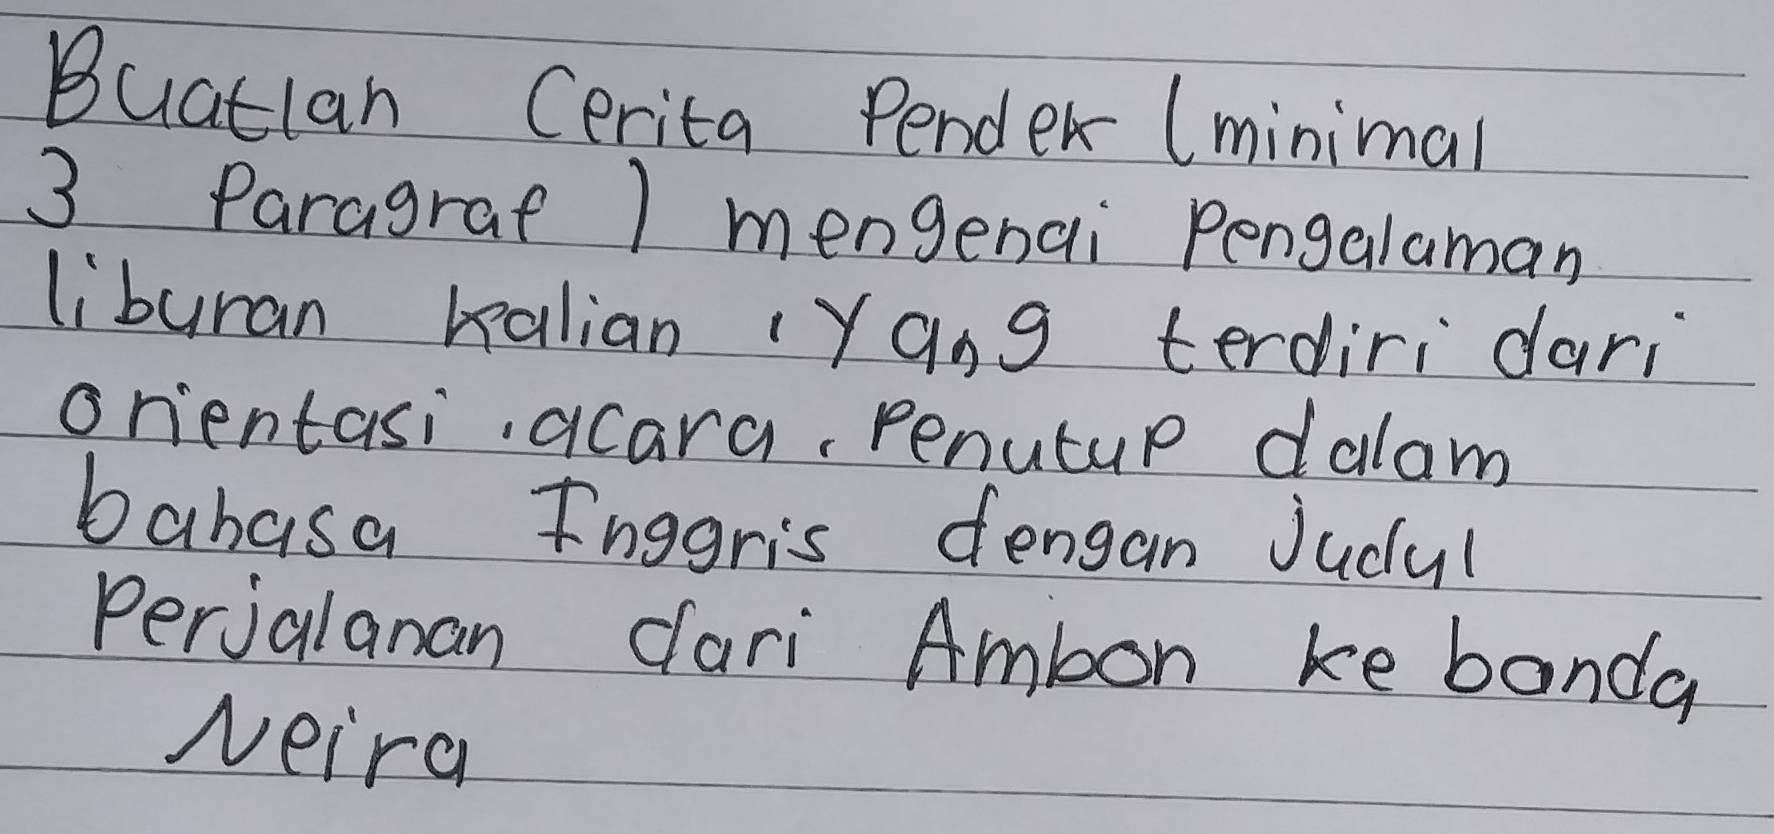 Buatlah Cerita Pendek (minimal
3 Paragraf) mengenai Pengalaman
liburan kalian, Yang terdiri dari
orientasi, acara, Penutup dalam
bahasa Inggris dengan Judul
Perjalanan dari Ambon ke banda
Neira